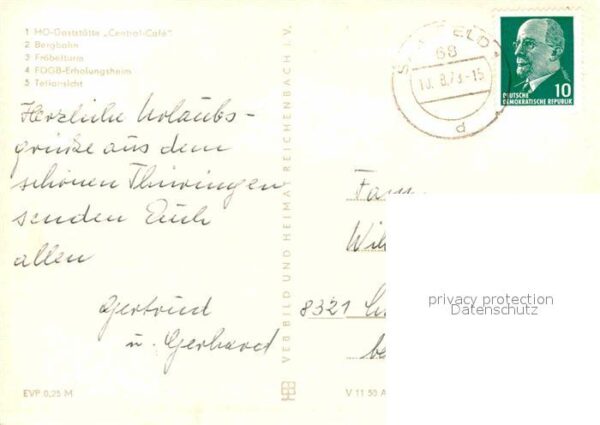 1 HO-Gaststätte „Central-Café"
2 Bergbahn
3 Fröbelturm
4 FDGB-Erholungsheim
5 Teilansicht
Herzliche Urlaubs-
grüße aus dem
schönen Thüringen
senden Euch
allen
Gertrud
u. Gerhard
EVP 0,25 M
VEB BILD UND HEIMAT REICHENBACH I. V.
68
10. 8.73-15
d
10
DEUTSCHE
DEMOKRATISCHE REPUBLIK
Fam.
8321
V 11 50 A
privacy protection
Datenschutz